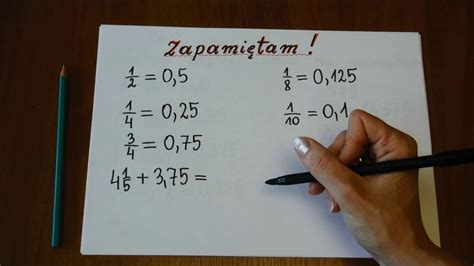 Zapamiętam !
1/2 = 0,5
1/8 = 0,125
1/4 = 0,25
1/10 = 0,1
3/4 = 0,75
4 1/5 + 3,75 =